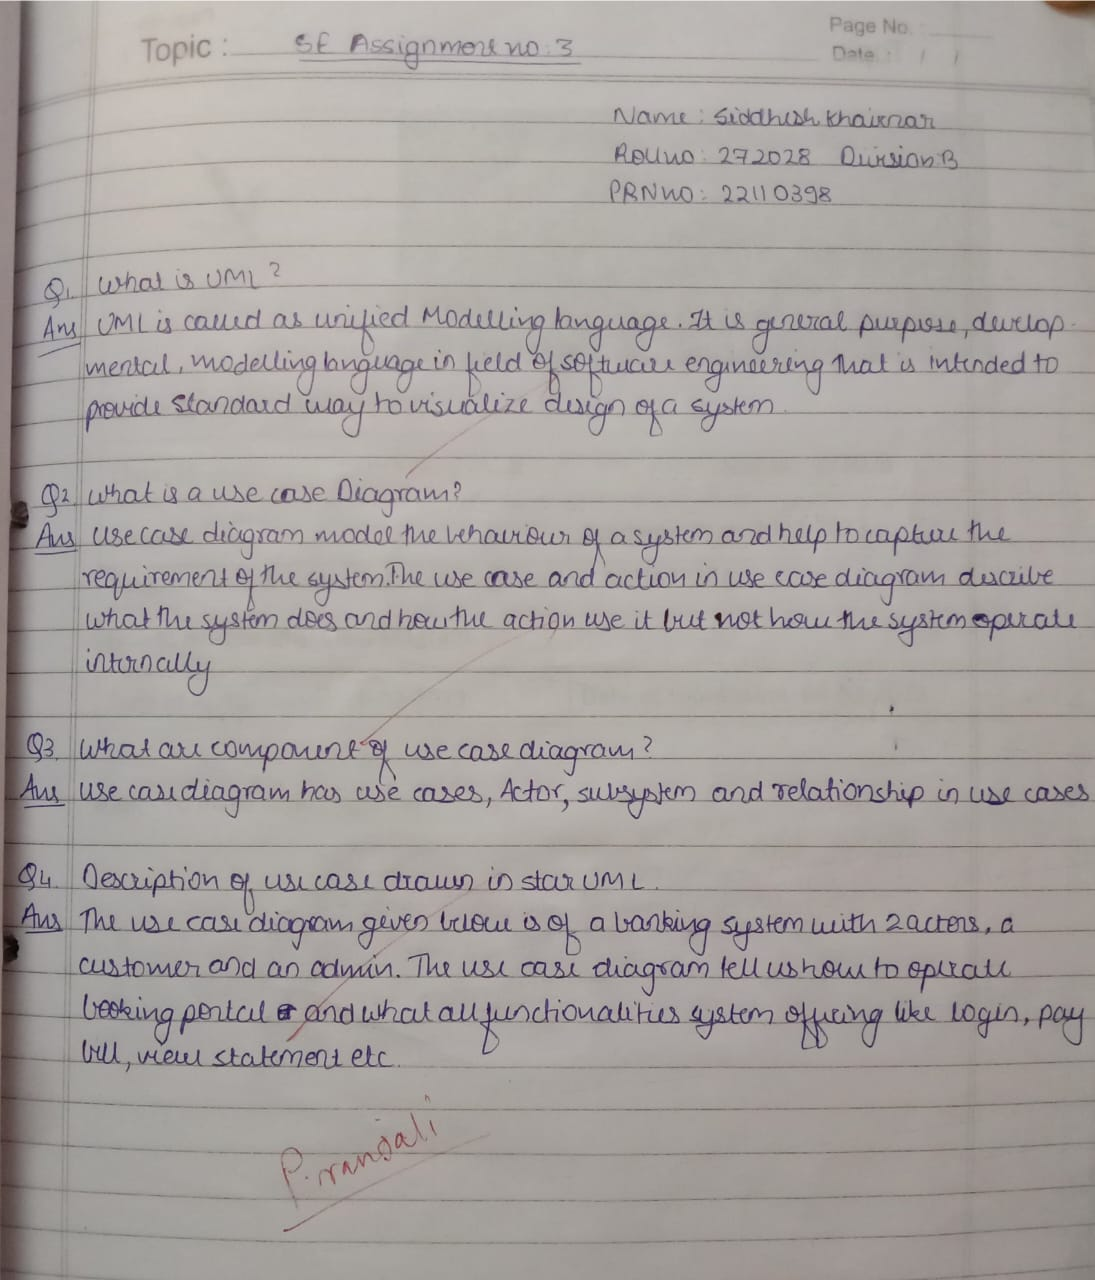 Page No.
Topic : SE Assignment no: 3
Date : / /
Name: Siddhesh Khairnar
Rollno: 272028 Division B
PRNno: 22110398
Q1. What is UML?
Ans UML is called as unified Modelling language. It is general purpose, develop-
mental, modelling language in field of software engineering that is intended to
provide standard way to visualize design of a system
Q2. What is a use case Diagram?
Ans use case diagram model the behaviour of a system and help to capture the
requirement of the system. The use case and action in use case diagram describe
what the system does and how the action use it but not how the system operate
internally
Q3. What are component of use case diagram?
Ans use case diagram has use cases, Actor, subsystem and relationship in use cases
Q4. Description of use case drawn in star UML.
Ans The use case diagram given below is of a banking system with 2 actors, a
customer and an admin. The use case diagram tell us how to operate
booking portal and what all functionalities system offering like login, pay
bill, view statement etc.
P.ranjali